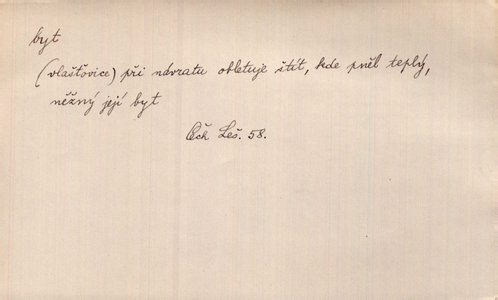 byt
(vlašťovice) při návratu obletuje štít, kde pněl teplý,
něžný její byt
Čch Leš. 58.